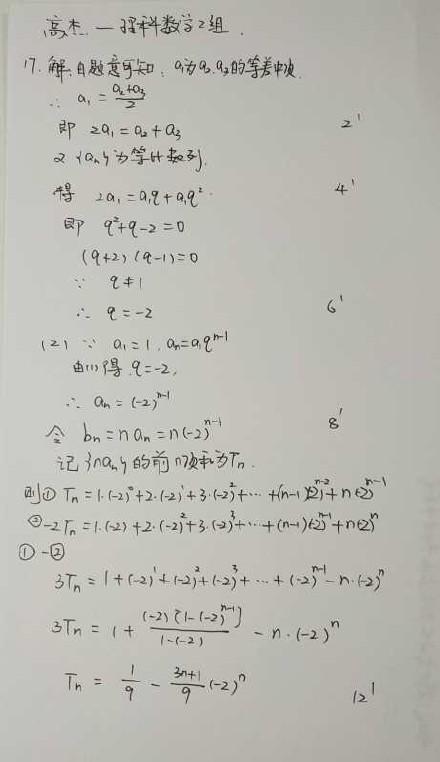 高杰一理科数学2组.
17. 解: 由题意可知: a₁为a₂.a₃的等差中项.
∴ a₁ = (a₂+a₃)/2
即 2a₁ = a₂ + a₃ 2'
又 {aₙ} 为等比数列.
得 2a₁ = a₁q + a₁q². 4'
即 q²+q-2=0
(q+2)(q-1)=0
∵ q≠1
∴ q=-2 6'
(2) ∵ a₁=1, aₙ=a₁qⁿ⁻¹
由(1)得 q=-2,
∴ aₙ = (-2)ⁿ⁻¹
令 bₙ = naₙ = n(-2)ⁿ⁻¹ 8'
记 {naₙ} 的前n项和为Tₙ.
则① Tₙ = 1·(-2)⁰+2·(-2)¹+3·(-2)²+…+(n-1)(-2)ⁿ⁻²+n(-2)ⁿ⁻¹
②-2Tₙ = 1·(-2)+2·(-2)²+3·(-2)³+…+(n-1)(-2)ⁿ⁻¹+n(-2)ⁿ
①-②
3Tₙ = 1+(-2)¹+(-2)²+(-2)³+…+(-2)ⁿ⁻¹-n·(-2)ⁿ
3Tₙ = 1 + (-2)[1-(-2)ⁿ⁻¹]/1-(-2) - n·(-2)ⁿ
Tₙ = 1/9 - (3n+1)/9 (-2)ⁿ 12'